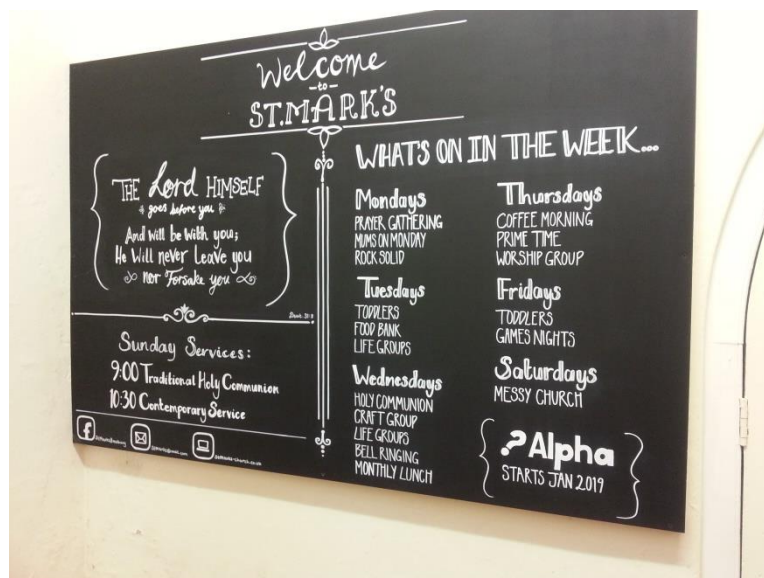 Welcome
to
ST.MARK'S
THE Lord HIMSELF
goes before you
And will be with you;
He Will never Leave you
nor Forsake you
Sunday Services:
9:00 Traditional Holy Communion
10:30 Contemporary Service
WHAT'S ON IN THE WEEK...
Mondays
PRAYER GATHERING
MUMS ON MONDAY
ROCK SOLID
Tuesdays
TODDLERS
FOOD BANK
LIFE GROUPS
Wednesdays
HOLY COMMUNION
CRAFT GROUP
LIFE GROUPS
BELL RINGING
MONTHLY LUNCH
Thursdays
COFFEE MORNING
PRIME TIME
WORSHIP GROUP
Fridays
TODDLERS
GAMES NIGHTS
Saturdays
MESSY CHURCH
? Alpha
STARTS JAN 2019